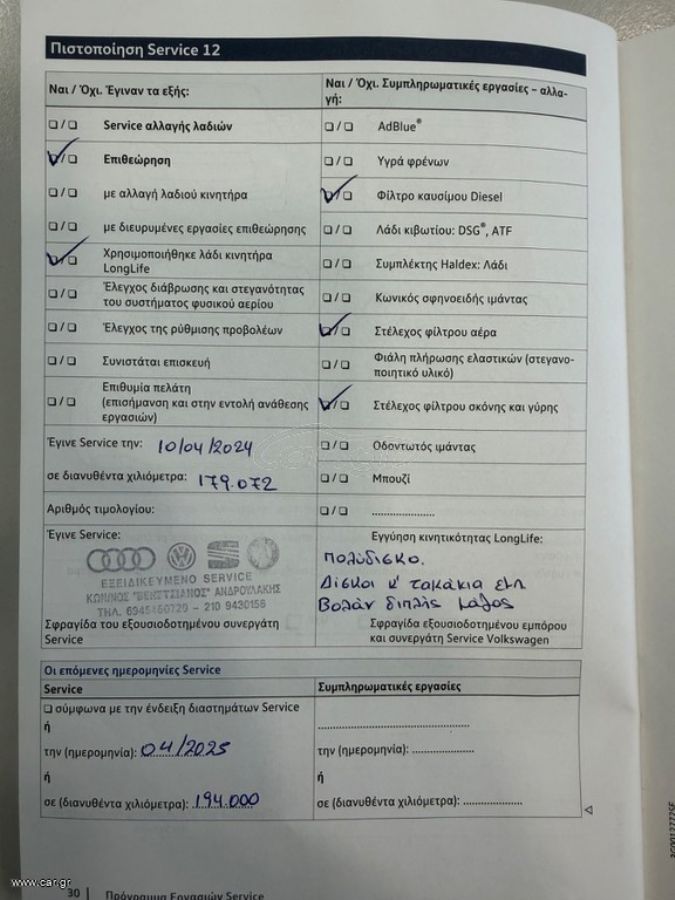 Πιστοποίηση Service 12
Ναι / Όχι. Έγιναν τα εξής:
❏ / ❏ Service αλλαγής λαδιών
❏ / ❏ Επιθεώρηση
❏ / ❏ με αλλαγή λαδιού κινητήρα
❏ / ❏ με διευρυμένες εργασίες επιθεώρησης
❏ / ❏ Χρησιμοποιήθηκε λάδι κινητήρα
LongLife
❏ / ❏ Έλεγχος διάβρωσης και στεγανότητας
του συστήματος φυσικού αερίου
❏ / ❏ Έλεγχος της ρύθμισης προβολέων
❏ / ❏ Συνιστάται επισκευή
❏ / ❏ Επιθυμία πελάτη
(επισήμανση και στην εντολή ανάθεσης
εργασιών)
Έγινε Service την: 10/04/2024
σε διανυθέντα χιλιόμετρα: 179.072
Αριθμός τιμολογίου:
Έγινε Service:
ΕΞΕΙΔΙΚΕΥΜΕΝΟ SERVICE
ΚΩΝ/ΝΟΣ "ΒΕΝΕΤΣΙΑΝΟΣ" ΑΝΔΡΟΥΛΑΚΗΣ
ΤΗΛ. - 210 9430156
Σφραγίδα του εξουσιοδοτημένου συνεργάτη
Service
Ναι / Όχι. Συμπληρωματικές εργασίες – αλλα-
γή:
❏ / ❏ AdBlue®
❏ / ❏ Υγρά φρένων
❏ / ❏ Φίλτρο καυσίμου Diesel
❏ / ❏ Λάδι κιβωτίου: DSG®, ATF
❏ / ❏ Συμπλέκτης Haldex: Λάδι
❏ / ❏ Κωνικός σφηνοειδής ιμάντας
❏ / ❏ Στέλεχος φίλτρου αέρα
❏ / ❏ Φιάλη πλήρωσης ελαστικών (στεγανο-
ποιητικό υλικό)
❏ / ❏ Στέλεχος φίλτρου σκόνης και γύρης
❏ / ❏ Οδοντωτός ιμάντας
❏ / ❏ Μπουζί
❏ / ❏ ....................
Εγγύηση κινητικότητας LongLife:
πολυδισκο.
Δίσκοι κ' τακάκια εμπ
Βολάν διπλής μάζας
Σφραγίδα εξουσιοδοτημένου εμπόρου
και συνεργάτη Service Volkswagen
Οι επόμενες ημερομηνίες Service
Service
❏ σύμφωνα με την ένδειξη διαστημάτων Service
ή
την (ημερομηνία): 04/2025
ή
σε (διανυθέντα χιλιόμετρα): 194.000
Συμπληρωματικές εργασίες
..................................................
την (ημερομηνία): ....................
ή
σε (διανυθέντα χιλιόμετρα): ....................
30 Πρόγραμμα Εργασιών Service
www.car.gr